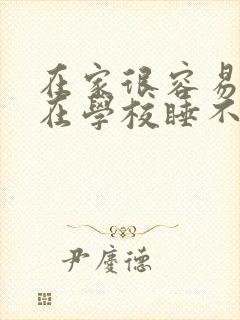 在家很容易
在學校睡不
尹慶德